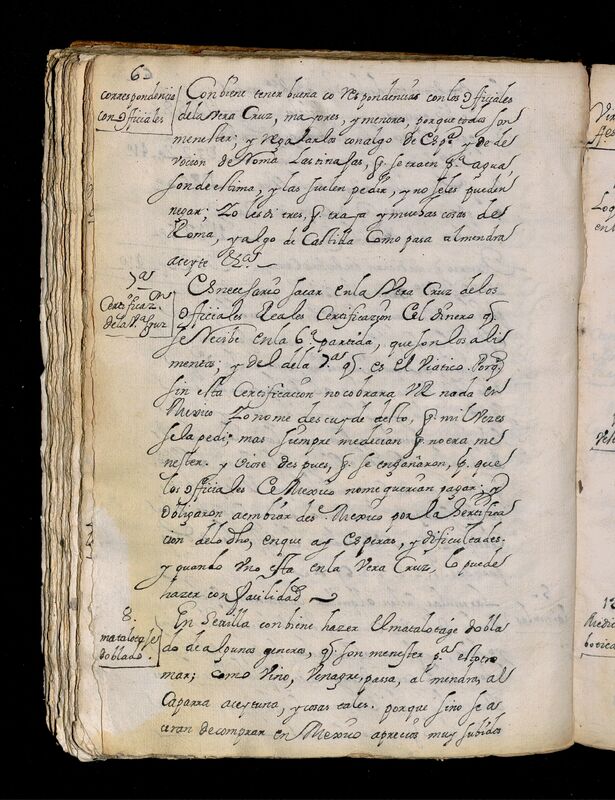 6
correspondencias
con officiales
Conbiene tener buena correspondencias con los officiales
de la Vera Cruz, mayores, y menores, porque todos son
menester; y regalarlos con algo de Espª y de de
vocion de Roma
son de estima, y las suelen pedir, y no se les pueden
negar; Yo les di tres, q. traya y muchas cosas de
Roma, y algo de Castilla como pasa almendra
aceyte &ª.
7ª
Certificaz.on
de la Vª Cruz
Es necessario sacar en la Vera Cruz de los
officiales Reales Certificazion Del dinero q.
se Recibe en la 6ª partida, que son los ali
mentos; y del de la 7ª q. es el Viatico. Porq.
sin esta Certificacion no cobrara VR nada en
Mexico Yo no me descuyde desto, q. mil Vezes
se la pedi; mas siempre me dician q. no era me
nester. y viose despues, q. se engañaron, p. que
los officiales De Mexico no me querian pagar; y
obligaron a embiar desde Mexico por la Certifica
cion de lo dho, en que ay Esperas, y dificultades.
y quando uno esta en la Vera Cruz, lo puede
hazer con facilidad
8.
matalotaje
doblado.
En Sevilla conbiene hazer El matalotage dobla
do de algunos generos, q. son menester pª estotro
mar; como Vino, Venagre, passa, almendra, al
caparra aceytuna, y cosas tales. porque sino se a
ceran de comprar en Mexico a precios muy subidos